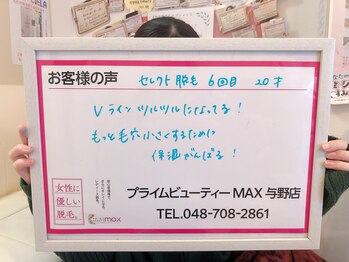 お客様の声
セレクト脱毛 6回目 20才
Vラインツルツルになってる!
もっと毛穴小さくするために
保湿がんばる!
女性に
優しい
脱毛。
max
プライムビューティーMAX 与野店
TEL.048-708-2861